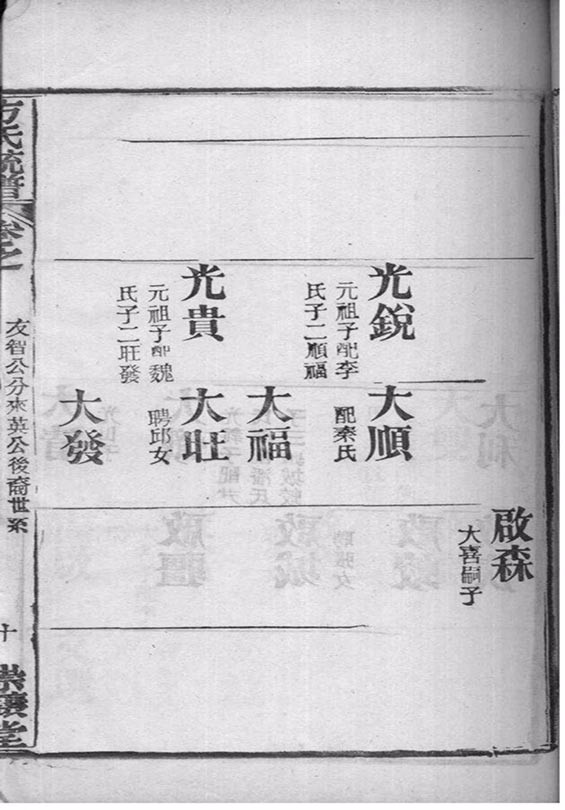 啟森
大喜嗣子
光銳
元祖子配李
氏子二順福
大順
配秦氏
大福
光貴
元祖子配魏
氏子二旺發
大旺
聘邱女
大發
方氏統譜
卷之
友智公分來英公後裔世系
十
堂